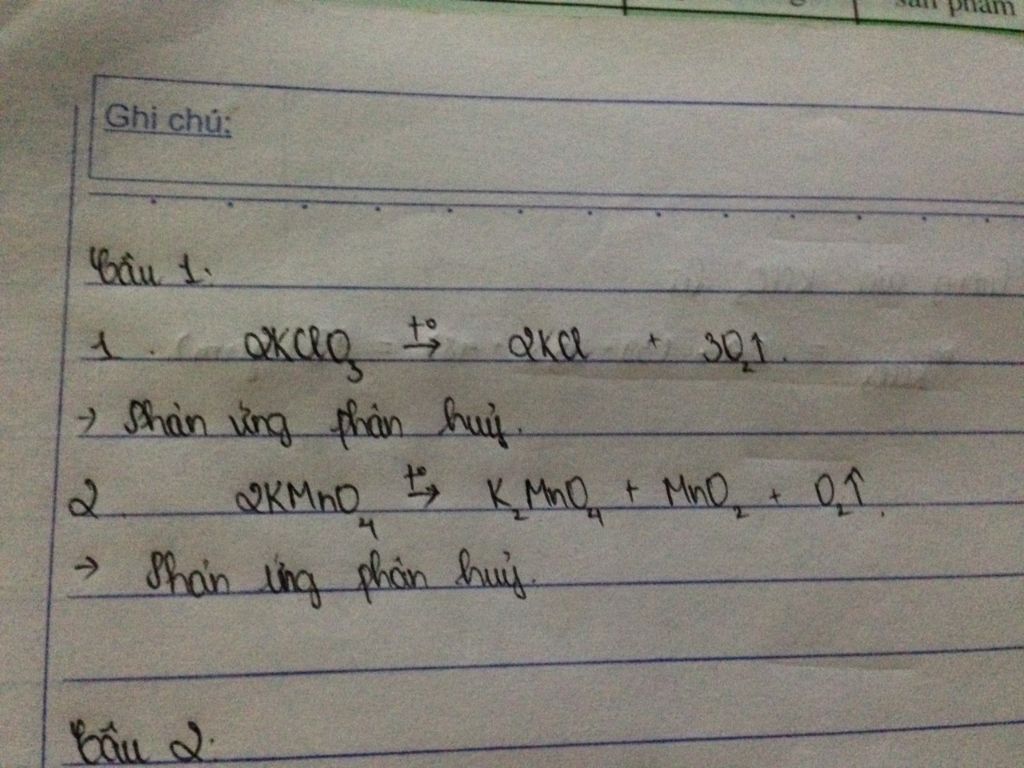 sản phẩm
Ghi chú:
Câu 1:
1. 2KClO₃ t°→ 2KCl + 3O₂↑.
→ Phản ứng phân huỷ.
2. 2KMnO₄ t°→ K₂MnO₄ + MnO₂ + O₂↑.
→ Phản ứng phân huỷ.
Câu 2: